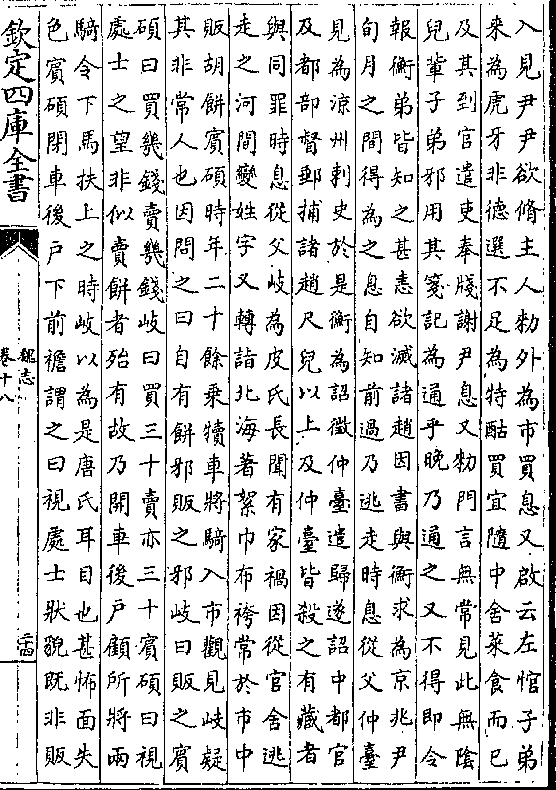 入見尹尹欲脩主人勑外為市買息又啟云左悺子弟
來為虎牙非德選不足為特酤買宜隨中舍菜食而已
及其到官遣吏奉牋謝尹息又勑門言無常見此無陰
兒輩子弟邪用其箋記為通乎晚乃通之又不得即令
報衡弟皆知之甚恚欲滅諸趙因書與衡求為京兆尹
旬月之間得為之息自知前過乃逃走時息從父仲臺
見為涼州刺史於是衡為詔徵仲臺遣歸遂詔中都官
及都部督郵捕諸趙尺兒以上及仲臺皆殺之有藏者
與同罪時息從父岐為皮氏長聞有家禍因從官舍逃
走之河間變姓字又轉詣北海著絮巾布袴常於市中
販胡餅賓碩時年二十餘乗犢車將騎入市觀見岐疑
其非常人也因問之曰自有餅邪販之邪岐曰販之賓
碩曰買幾錢賣幾錢岐曰買三十賣亦三十賓碩曰視
處士之望非似賣餅者殆有故乃開車後戶顧所將兩
騎令下馬扶上之時岐以為是唐氏耳目也甚怖面失
色賓碩閉車後戶下前襜謂之曰視處士狀貌既非販
欽定四庫全書
魏志
卷十八
二十四